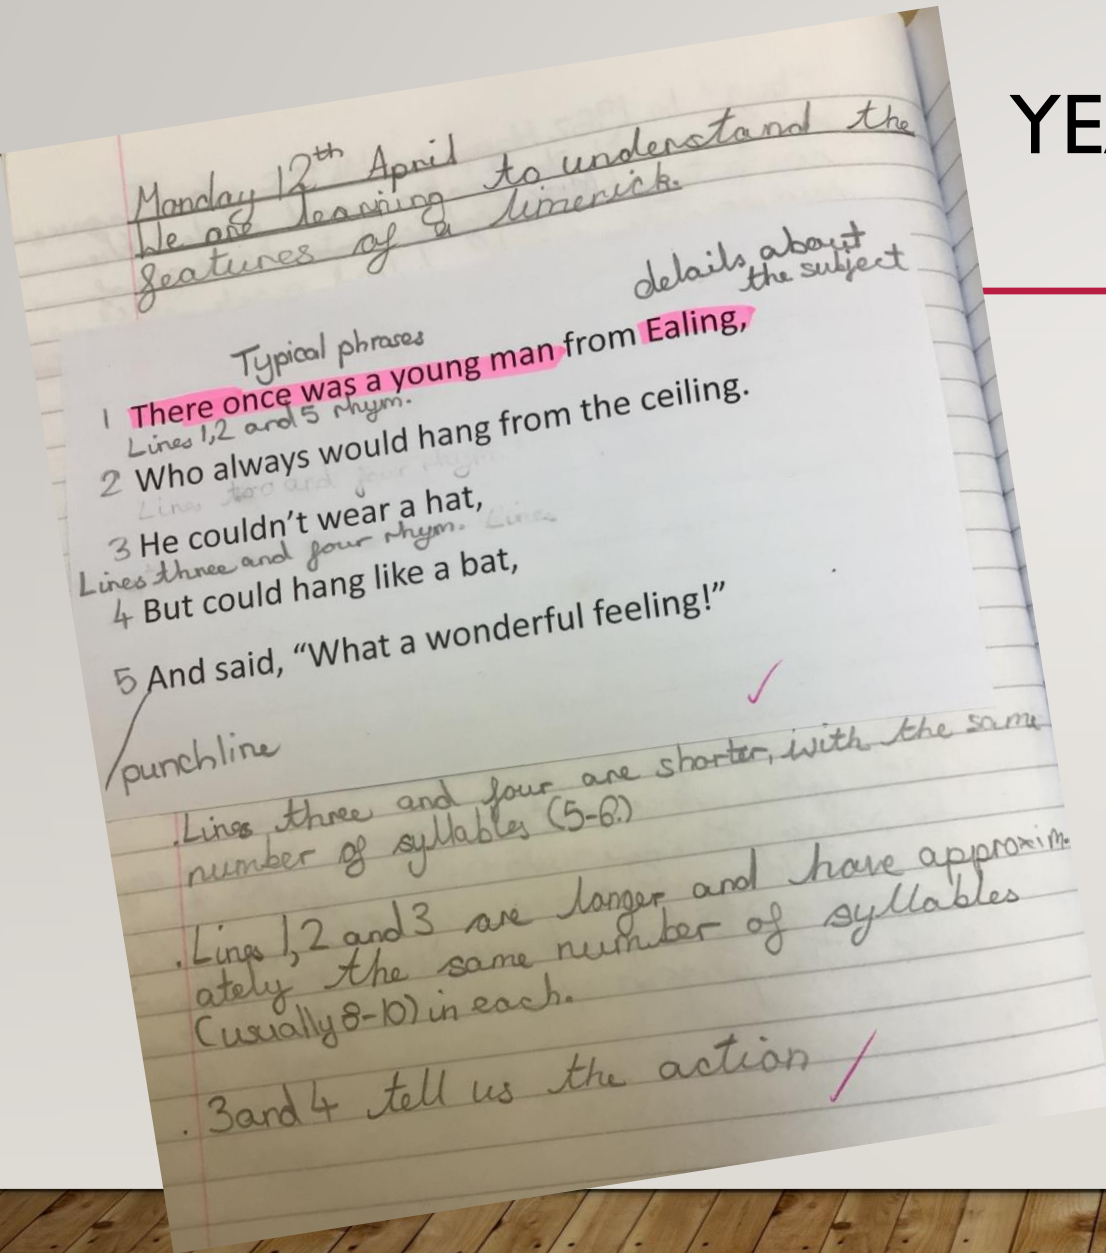 YEA
Monday 12th April
We are learning to understand the
features of a limerick.
details about
the subject
Typical phrases
1 There once was a young man from Ealing,
Lines 1,2 and 5 rhym.
2 Who always would hang from the ceiling.
Line too and four rhym
3 He couldn't wear a hat,
Lines three and four rhym. Lines
4 But could hang like a bat,
5 And said, "What a wonderful feeling!"
punchline
. Lines three and four are shorter, with the same
number of syllables (5-6.)
. Lines 1,2 and 3 are longer and have approxim-
ately the same number of syllables
(usually 8-10) in each.
. 3 and 4 tell us the action